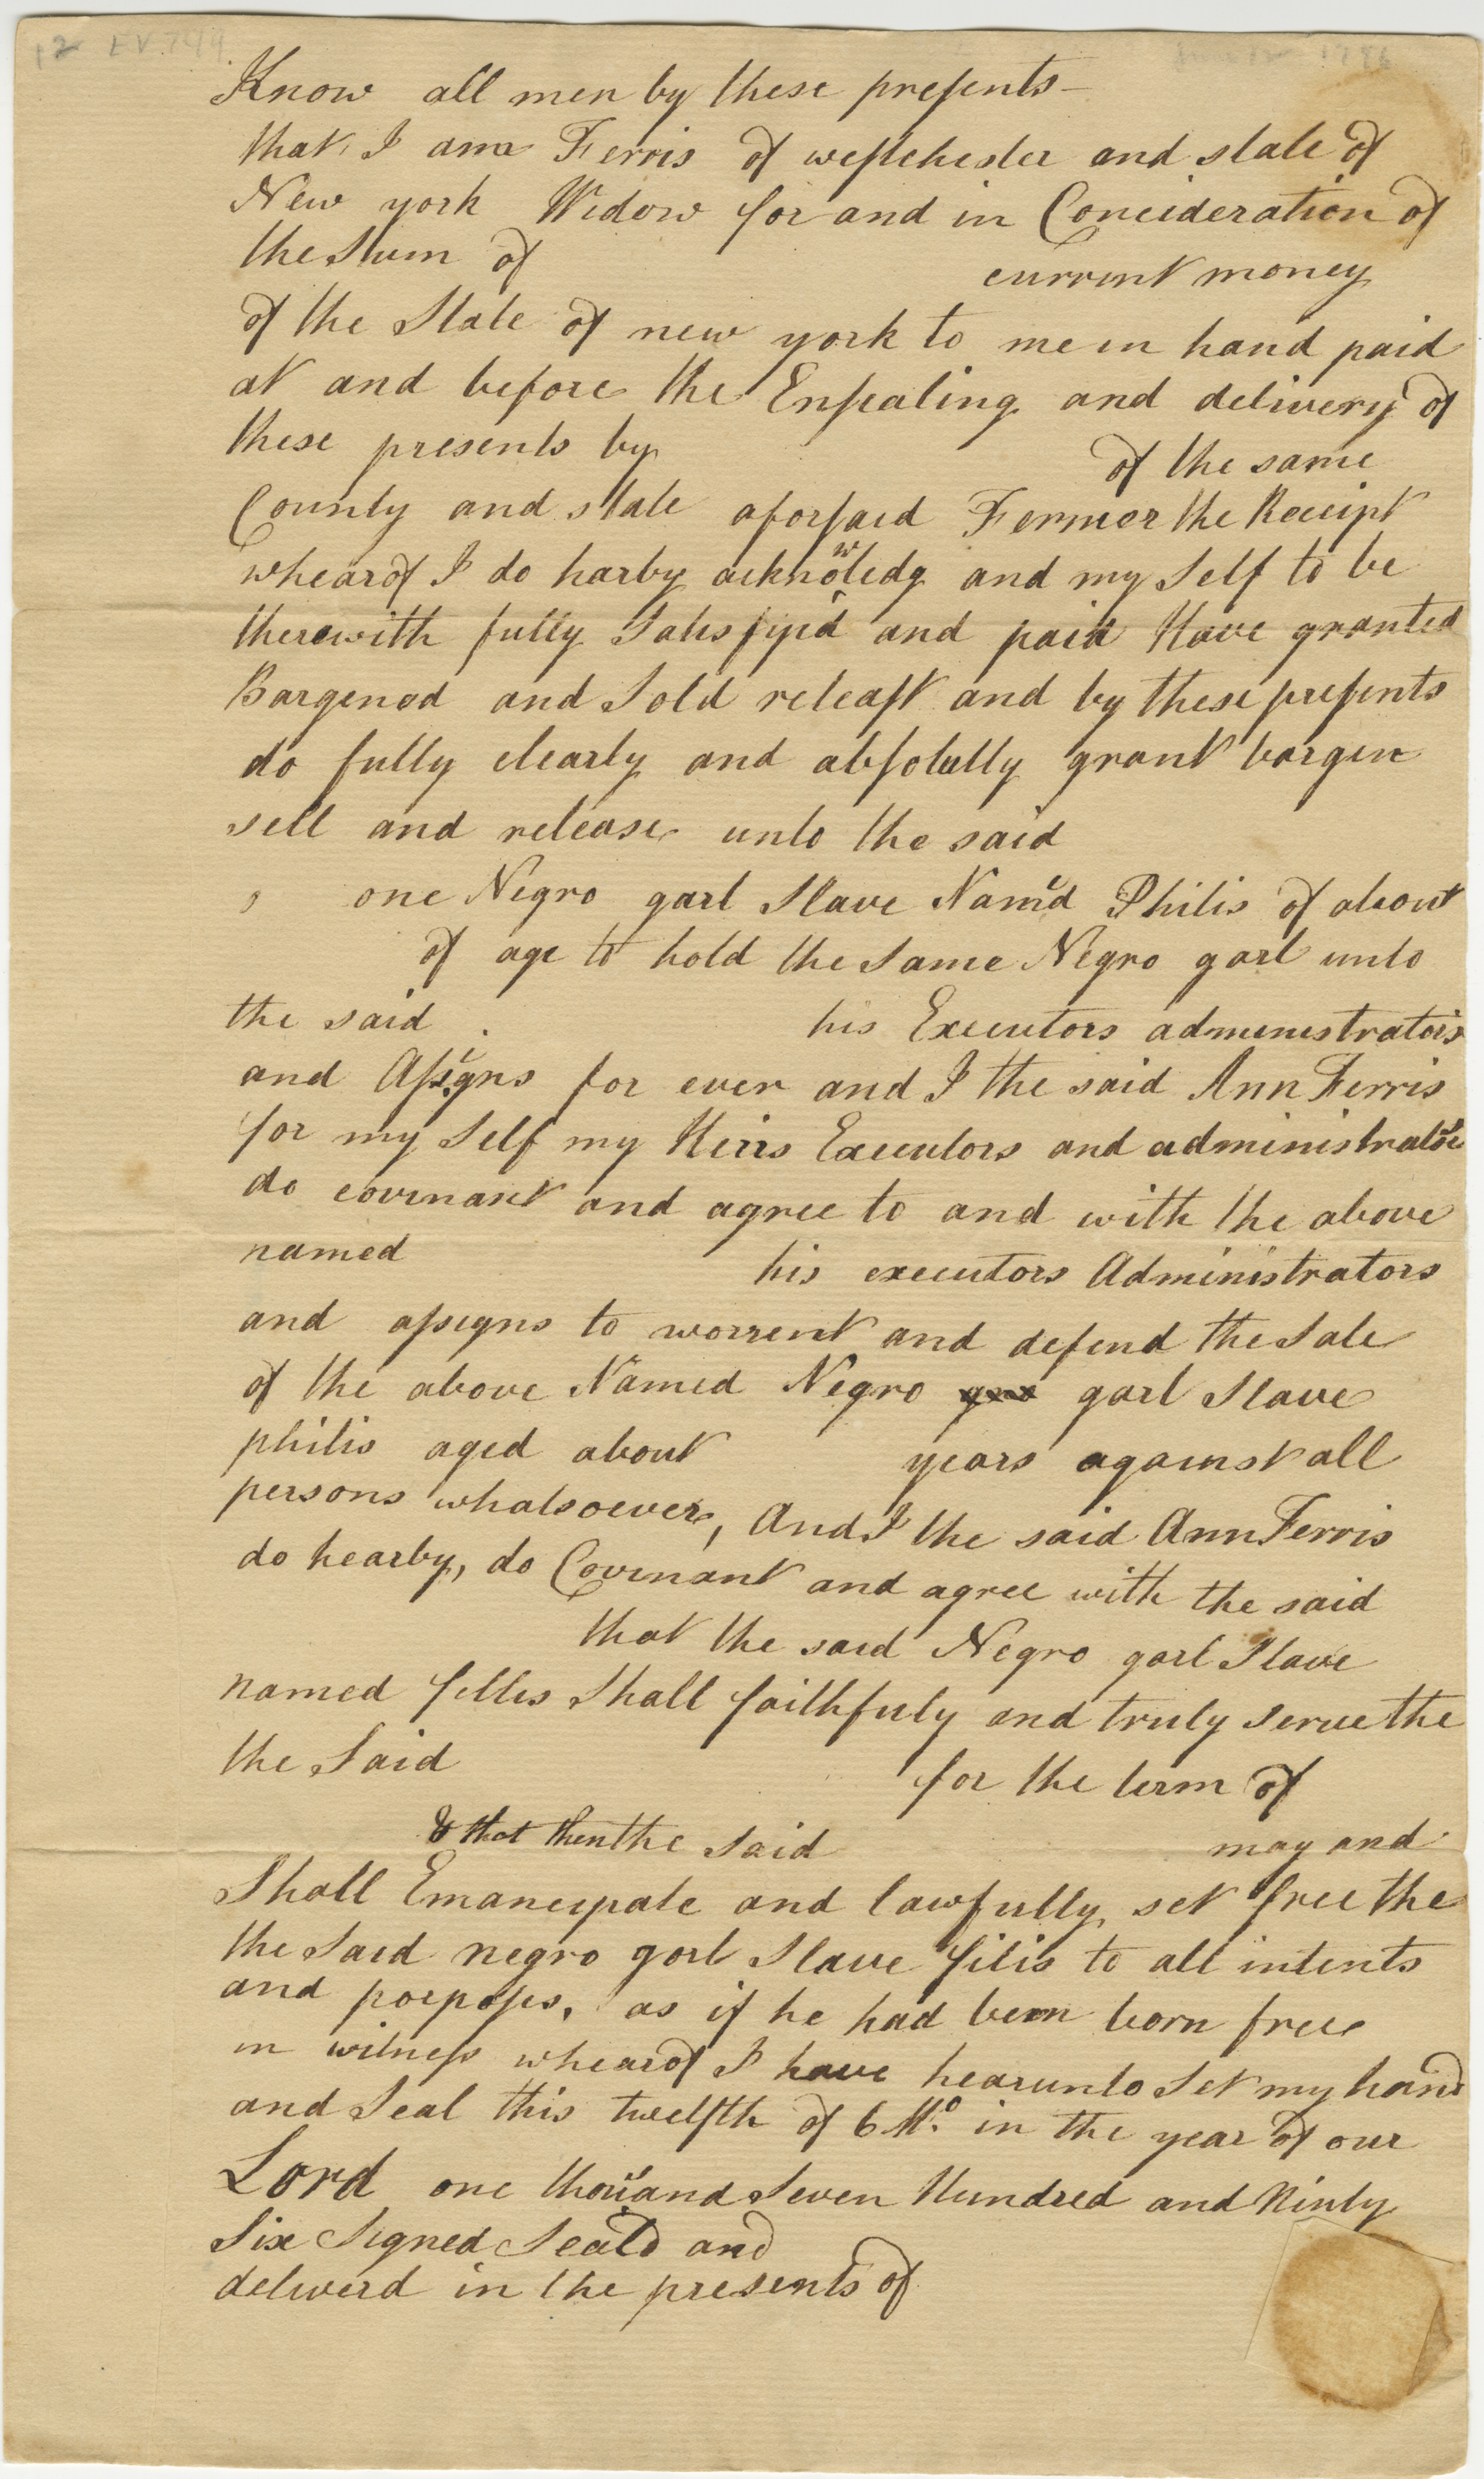 12 EV.749
Know all men by these presents—
that I ann Ferris of westchester and state of
New york Widow for and in Concideration of
the Sum of current money
of the State of new york to me in hand paid
at and before the Ensealing and delivery of
these presents by of the same
County and state aforsaid Fermer the Receipt
whearof I do harby acknowledg and my Self to be
therewith fully Satisfyed and paid Have granted
Bargened and Sold releast and by these presents
do fully clearly and absolutly grant bargen
sell and release unto the said
one Negro garl Slave Nam'd Philis of about
of age to hold the same Negro garl unto
the said his Executors administrators
and Assigns for ever and I the said Ann Ferris
for my Self my Heirs Executors and administrators
do covenant and agree to and with the above
named his executors Administrators
and assigns to worrent and defend the Sale
of the above Named Negro garl Slave
philis aged about years against all
persons whatsoever, And I the said Ann Ferris
do hearby, do Covenant and agree with the said
that the said Negro garl Slave
named fillis Shall faithfuly and truly serve the
the Said for the term of
& that then the Said may and
Shall Emancipate and lawfully set free the
the Said negro garl Slave filis to all intents
and porposes, as if he had been born free
in witness whearof I have hearunto Set my hand
and Seal this twelfth of 6 Mo. in the year of our
Lord one thousand Seven Hundred and Ninty
Six Signed Seald and
deliverd in the presents of